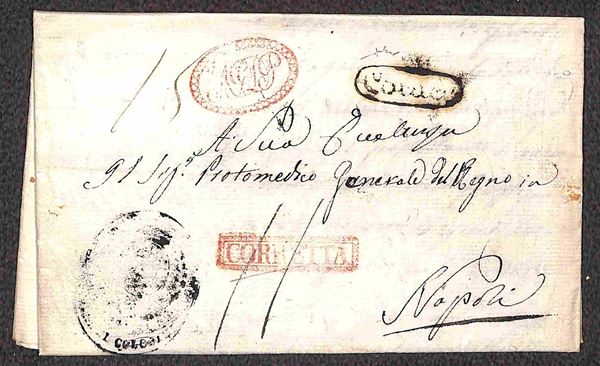 15
A Sua Eccellenza
Il Sigr. Protomedico Generale del Regno in
CORRETTA
11
Napoli